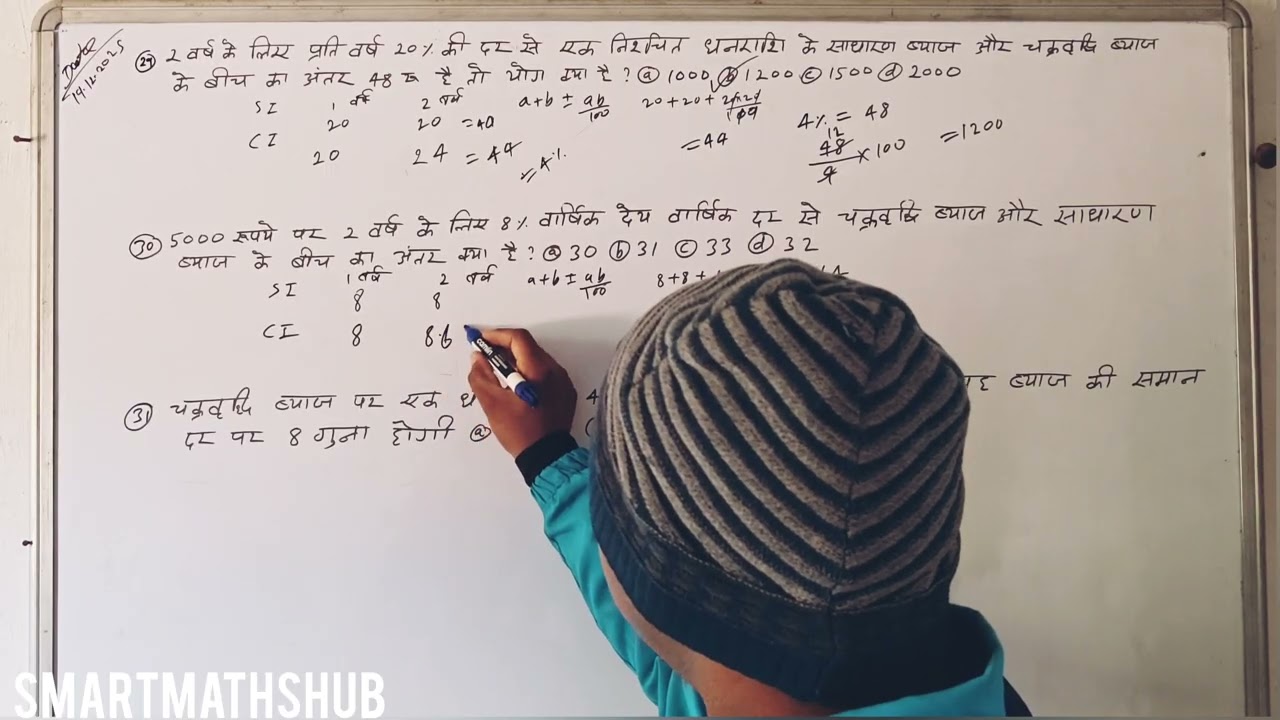 14.12.2025
29 2 वर्ष के लिए प्रति वर्ष 20% की दर से एक निश्चित धनराशि के साधारण ब्याज और चक्रवृद्धि ब्याज
के बीच का अंतर 48 रू है तो योग क्या है ? ⓐ 1000 ⓑ 1200 ⓒ 1500 ⓓ 2000
1 वर्ष 2 वर्ष
SI 20 20 = 40
CI 20 24 = 44
4%
a+b ± ab/100
20+20+ 20×20/100
= 44
4% = 48
48/4 × 100 = 1200
12
30 5000 रूपये पर 2 वर्ष के लिए 8% वार्षिक देय वार्षिक दर से चक्रवृद्धि ब्याज और साधारण
ब्याज के बीच का अंतर क्या है ? ⓐ 30 ⓑ 31 ⓒ 33 ⓓ 32
1 वर्ष 2 वर्ष
SI 8 8
CI 8 8.6
a+b ± ab/100
8+8+
31 चक्रवृद्धि ब्याज पर एक 4 ब्याज की समान
दर पर 8 गुना होगी ⓐ
SMARTMATHSHUB